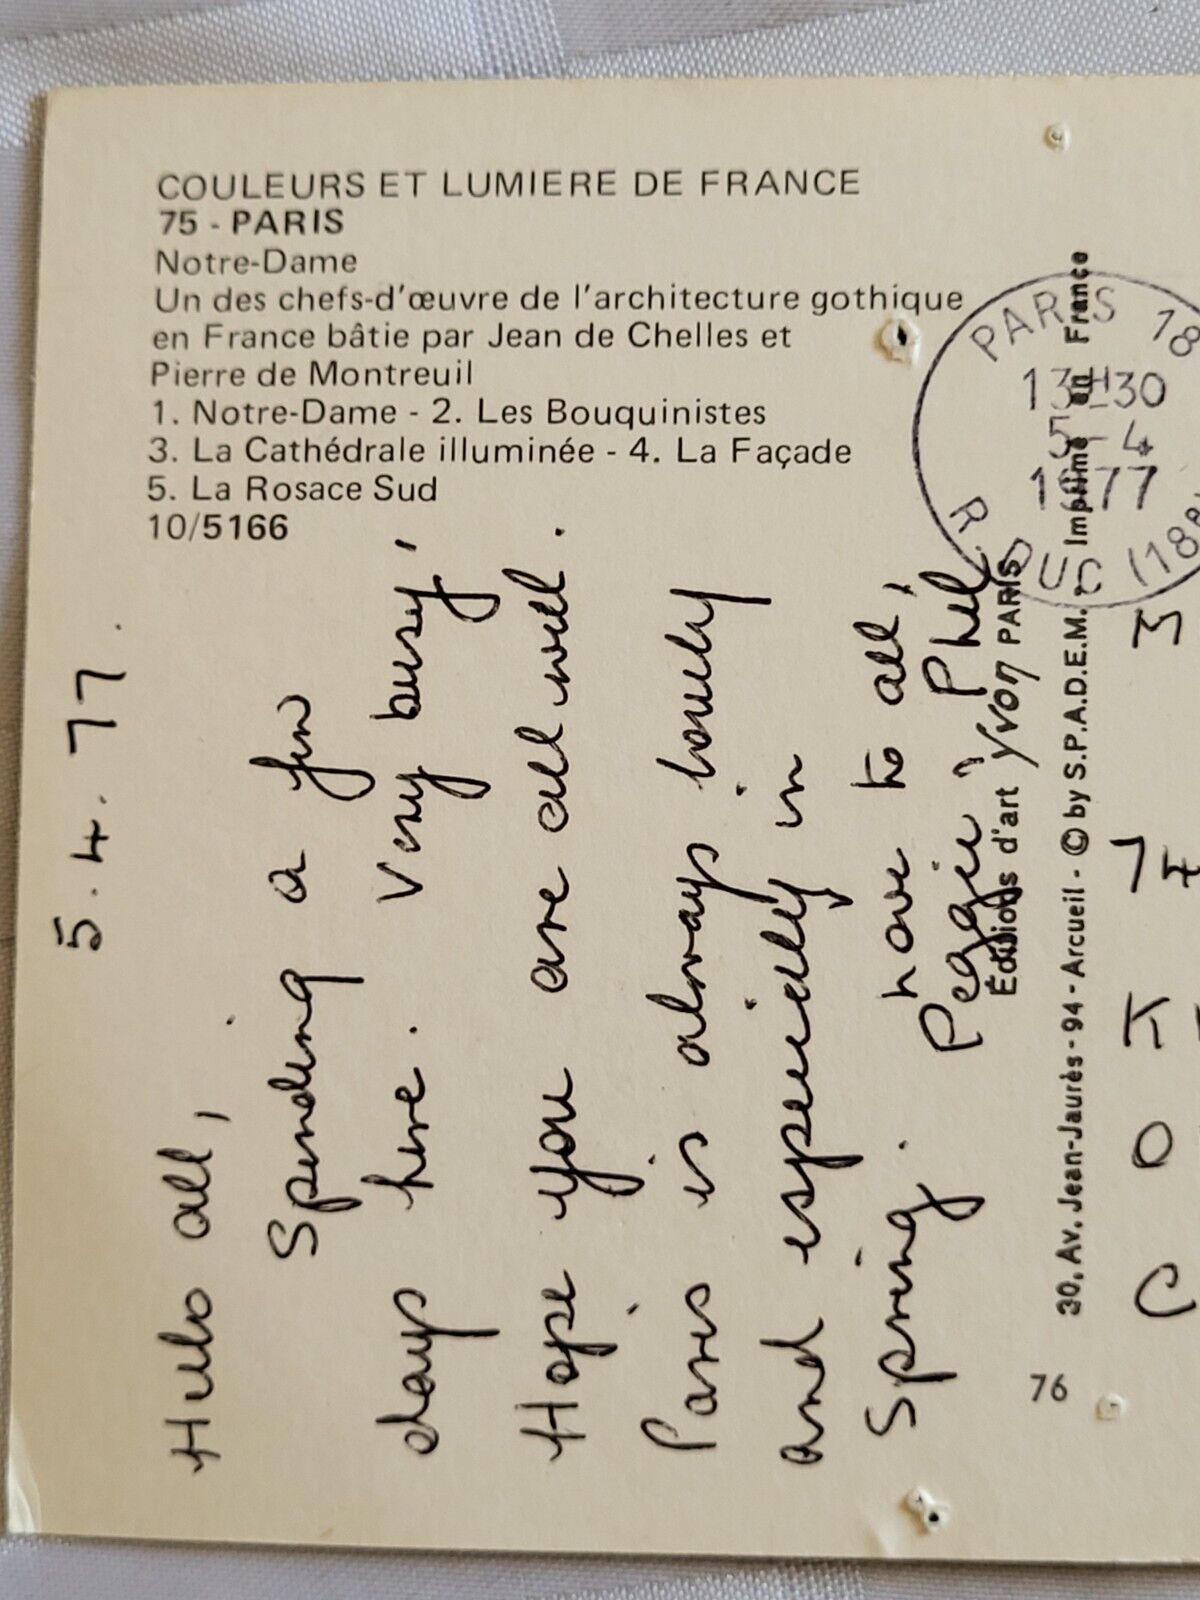 COULEURS ET LUMIERE DE FRANCE
75 - PARIS
Notre-Dame
Un des chefs-d'œuvre de l'architecture gothique
en France bâtie par Jean de Chelles et
Pierre de Montreuil
1. Notre-Dame - 2. Les Bouquinistes
3. La Cathédrale illuminée - 4. La Façade
5. La Rosace Sud
10/5166
5.4.77.
Hullo all,
Spending a few
days here. Very busy,
Hope you are all well.
Paris is always lovely
and especially in
Spring. Love to all,
Peggie & Phil
PARIS 18
13H30
5-4
1977
R. DU
Éditions d'art Yvon PARIS
30, Av. Jean-Jaurès - 94 - Arcueil - © by S.P.A.D.E.M.
Imprimé en France
76